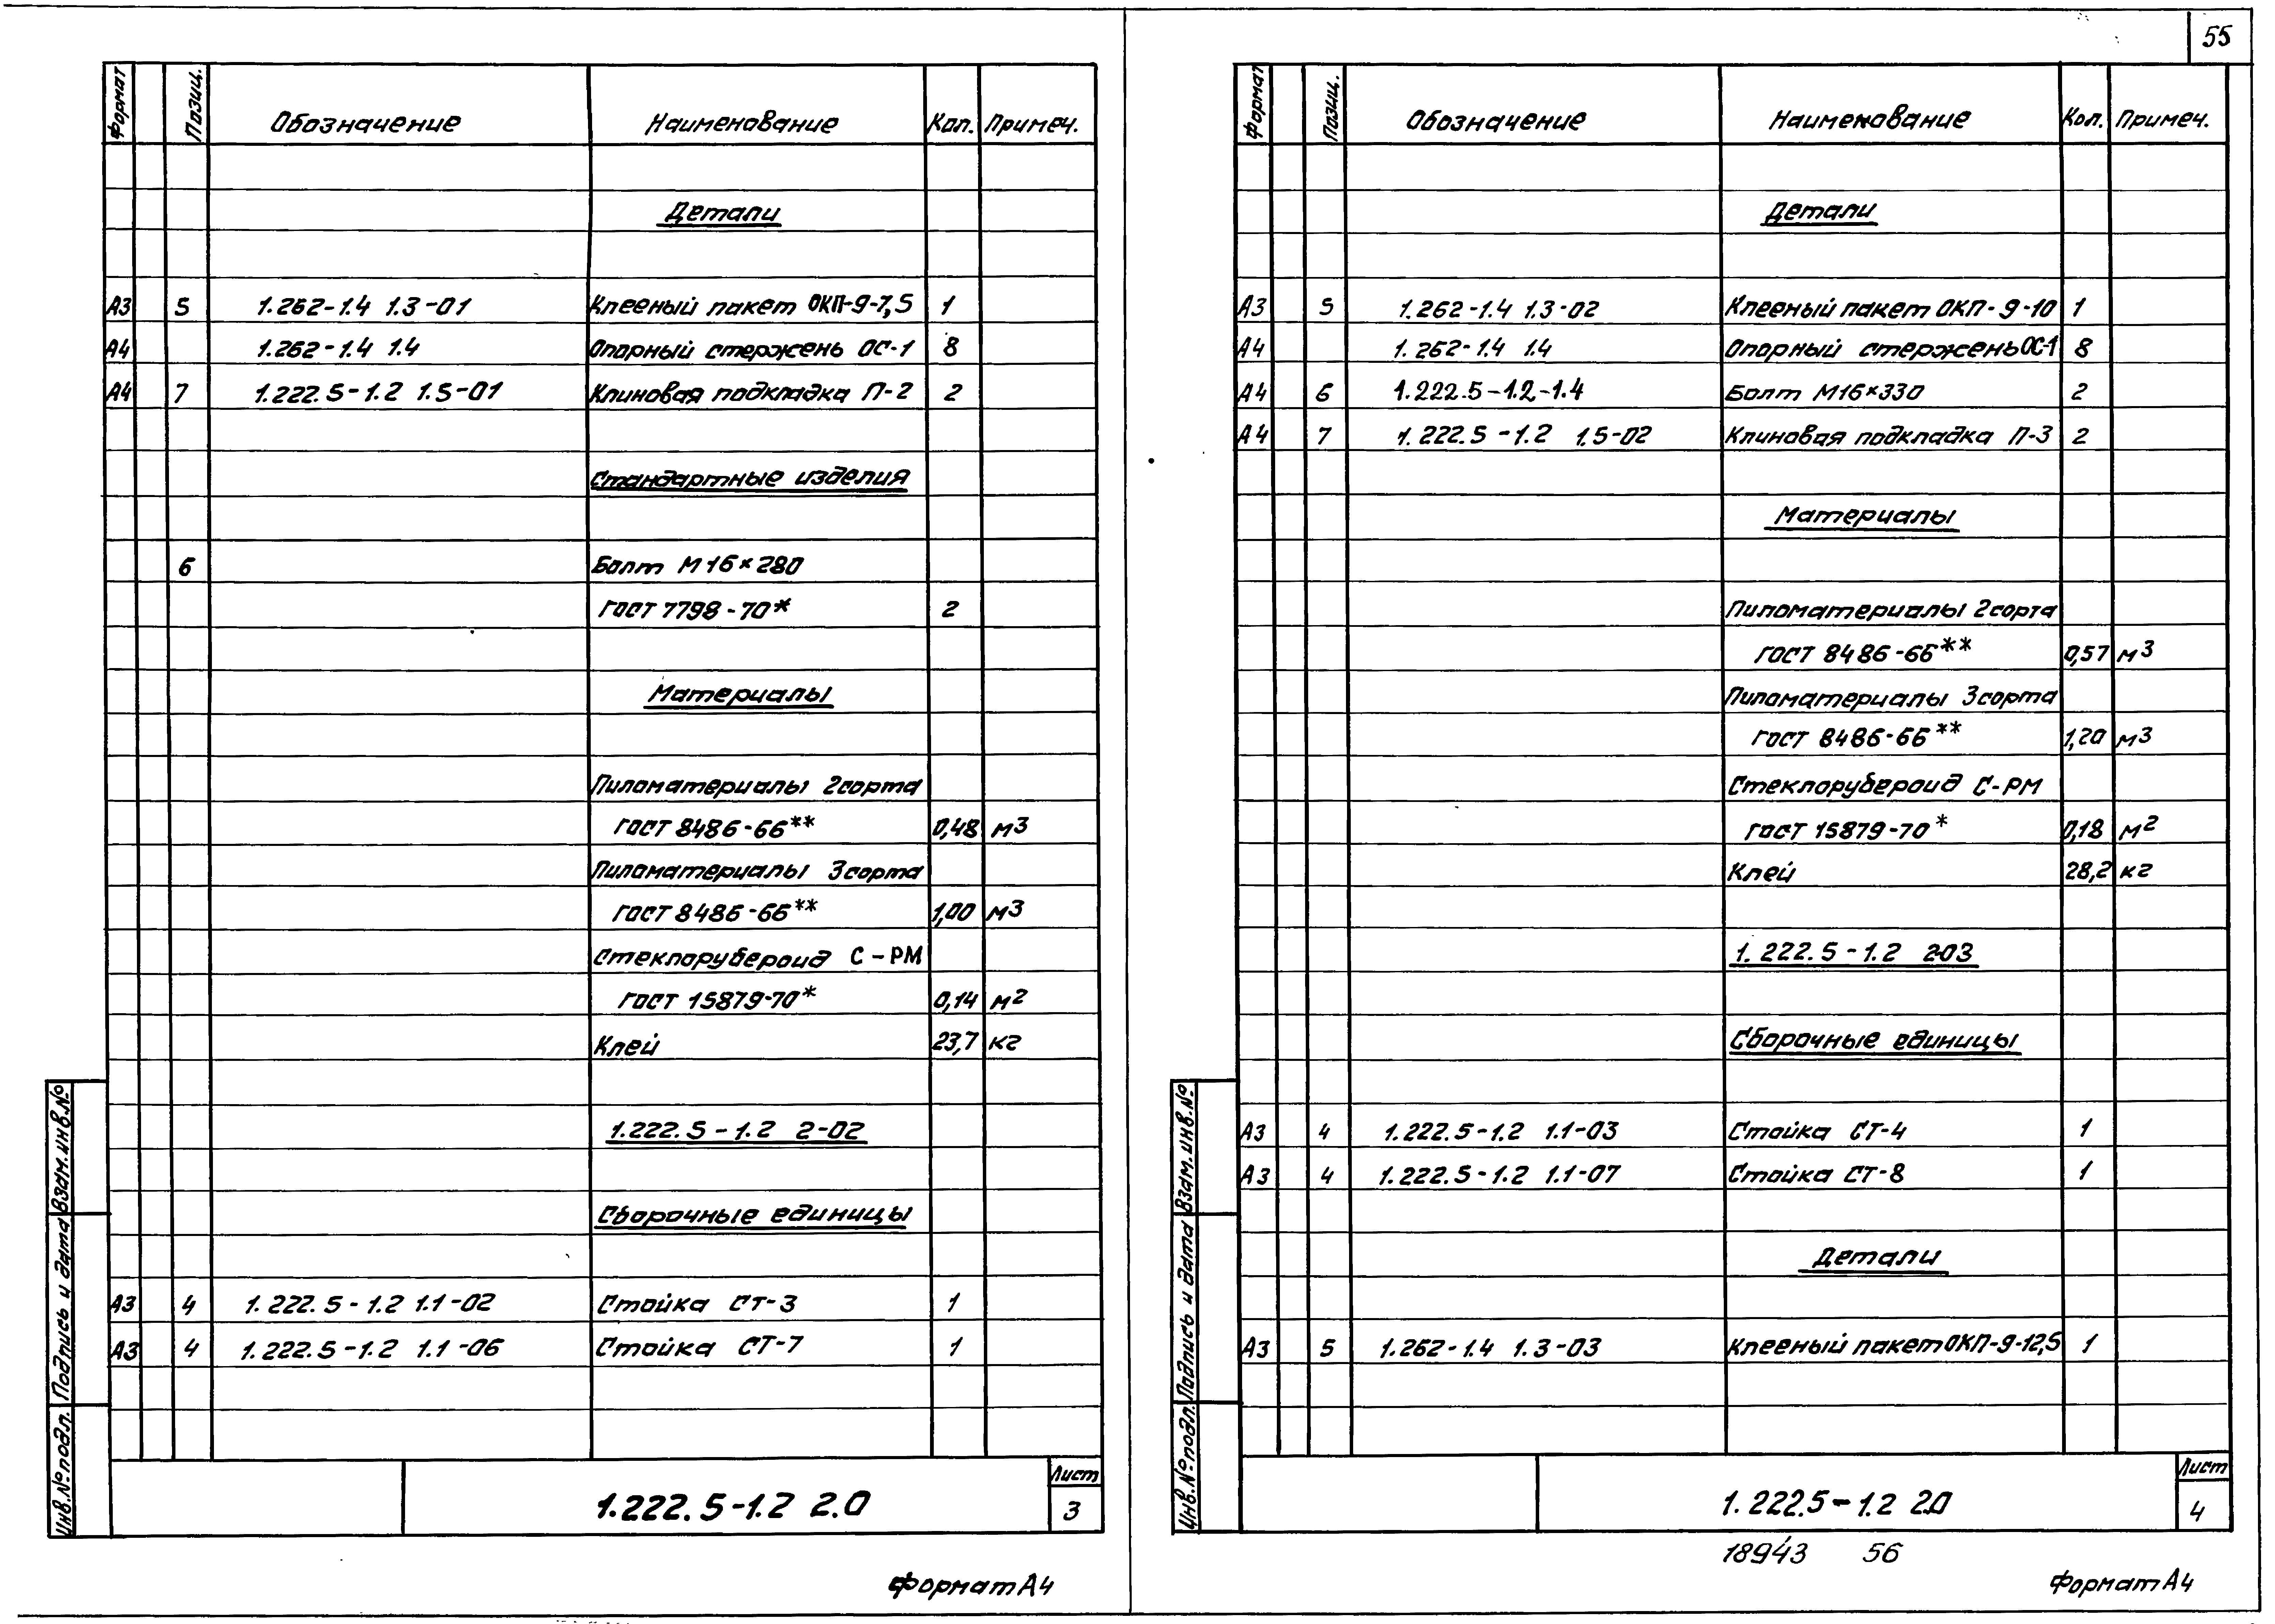 55
Формат Позиц. Обозначение Наименование Кол. Примеч.
Детали
А3 5 1.262-1.4 1.3-01 Клееный пакет ОКП-9-7,5 1
А4 1.262-1.4 1.4 Опорный стержень ОС-1 8
А4 7 1.222.5-1.2 1.5-01 Клиновая подкладка П-2 2
Стандартные изделия
6 Болт М16×280
ГОСТ 7798-70* 2
Материалы
Пиломатериалы 2сорта
ГОСТ 8486-66** 0,48 м3
Пиломатериалы 3сорта
ГОСТ 8486-66** 1,00 м3
Стеклорубероид С-РМ
ГОСТ 15879-70* 0,14 м2
Клей 23,7 кг
1.222.5-1.2 2-02
Сборочные единицы
А3 4 1.222.5-1.2 1.1-02 Стойка Ст-3 1
А3 4 1.222.5-1.2 1.1-06 Стойка СТ-7 1
Инв.№подл. Подпись и дата Взам.инв.№
1.222.5-1.2 2.0
Лист
3
Формат А4
Формат Позиц. Обозначение Наименование Кол. Примеч.
Детали
А3 5 1.262-1.4 1.3-02 Клееный пакет ОКП-9-10 1
А4 1.262-1.4 1.4 Опорный стержень ОС-1 8
А4 6 1.222.5-1.2-1.4 Болт М16×330 2
А4 7 1.222.5-1.2 1.5-02 Клиновая подкладка П-3 2
Материалы
Пиломатериалы 2сорта
ГОСТ 8486-66** 0,57 м3
Пиломатериалы 3сорта
ГОСТ 8486-66** 1,20 м3
Стеклорубероид С-РМ
ГОСТ 15879-70* 0,18 м2
Клей 28,2 кг
1.222.5-1.2 2-03
Сборочные единицы
А3 4 1.222.5-1.2 1.1-03 Стойка СТ-4 1
А3 4 1.222.5-1.2 1.1-07 Стойка СТ-8 1
Детали
А3 5 1.262-1.4 1.3-03 Клееный пакет ОКП-9-12,5 1
Инв.№подл. Подпись и дата Взам.инв.№
1.222.5-1.2 2.0
Лист
4
18943 56
Формат А4